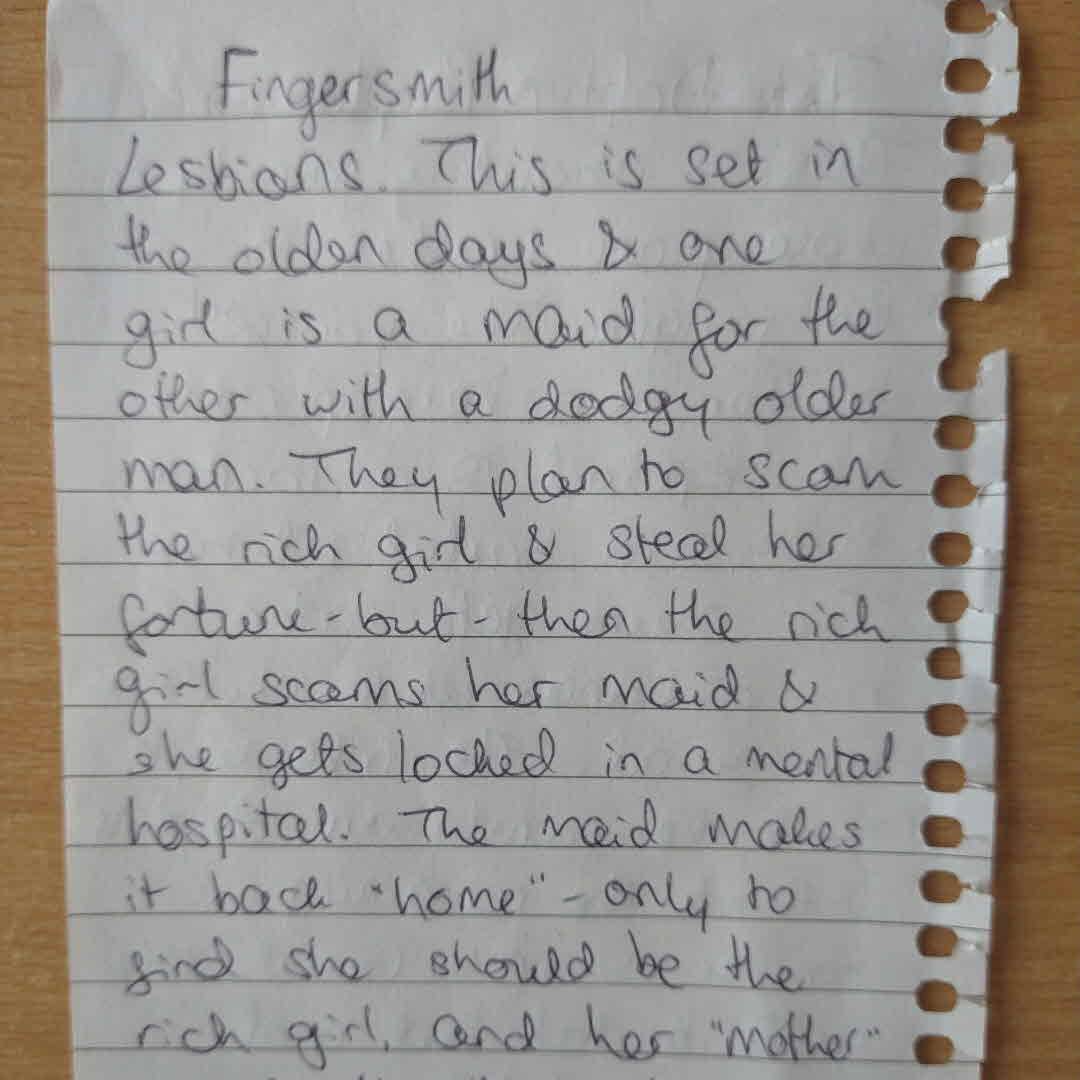 Fingersmith
Lesbians. This is set in
the olden days & one
girl is a maid for the
other with a dodgy older
man. They plan to scam
the rich girl & steal her
fortune - but - then the rich
girl scams her maid &
she gets locked in a mental
hospital. The maid makes
it back "home" - only to
find she should be the
rich girl, and her "mother"